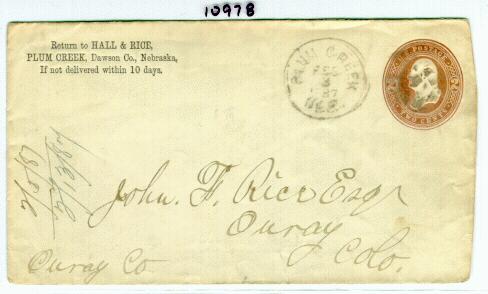 10978
Return to HALL & RICE,
PLUM CREEK, Dawson Co., Nebraska,
If not delivered within 10 days.
PLUM CREEK
3
87
NEB.
U.S. POSTAGE
TWO CENTS
2/5/87
2/13/87
John. F. Rice Esqr
Ouray
Colo.
Ouray Co